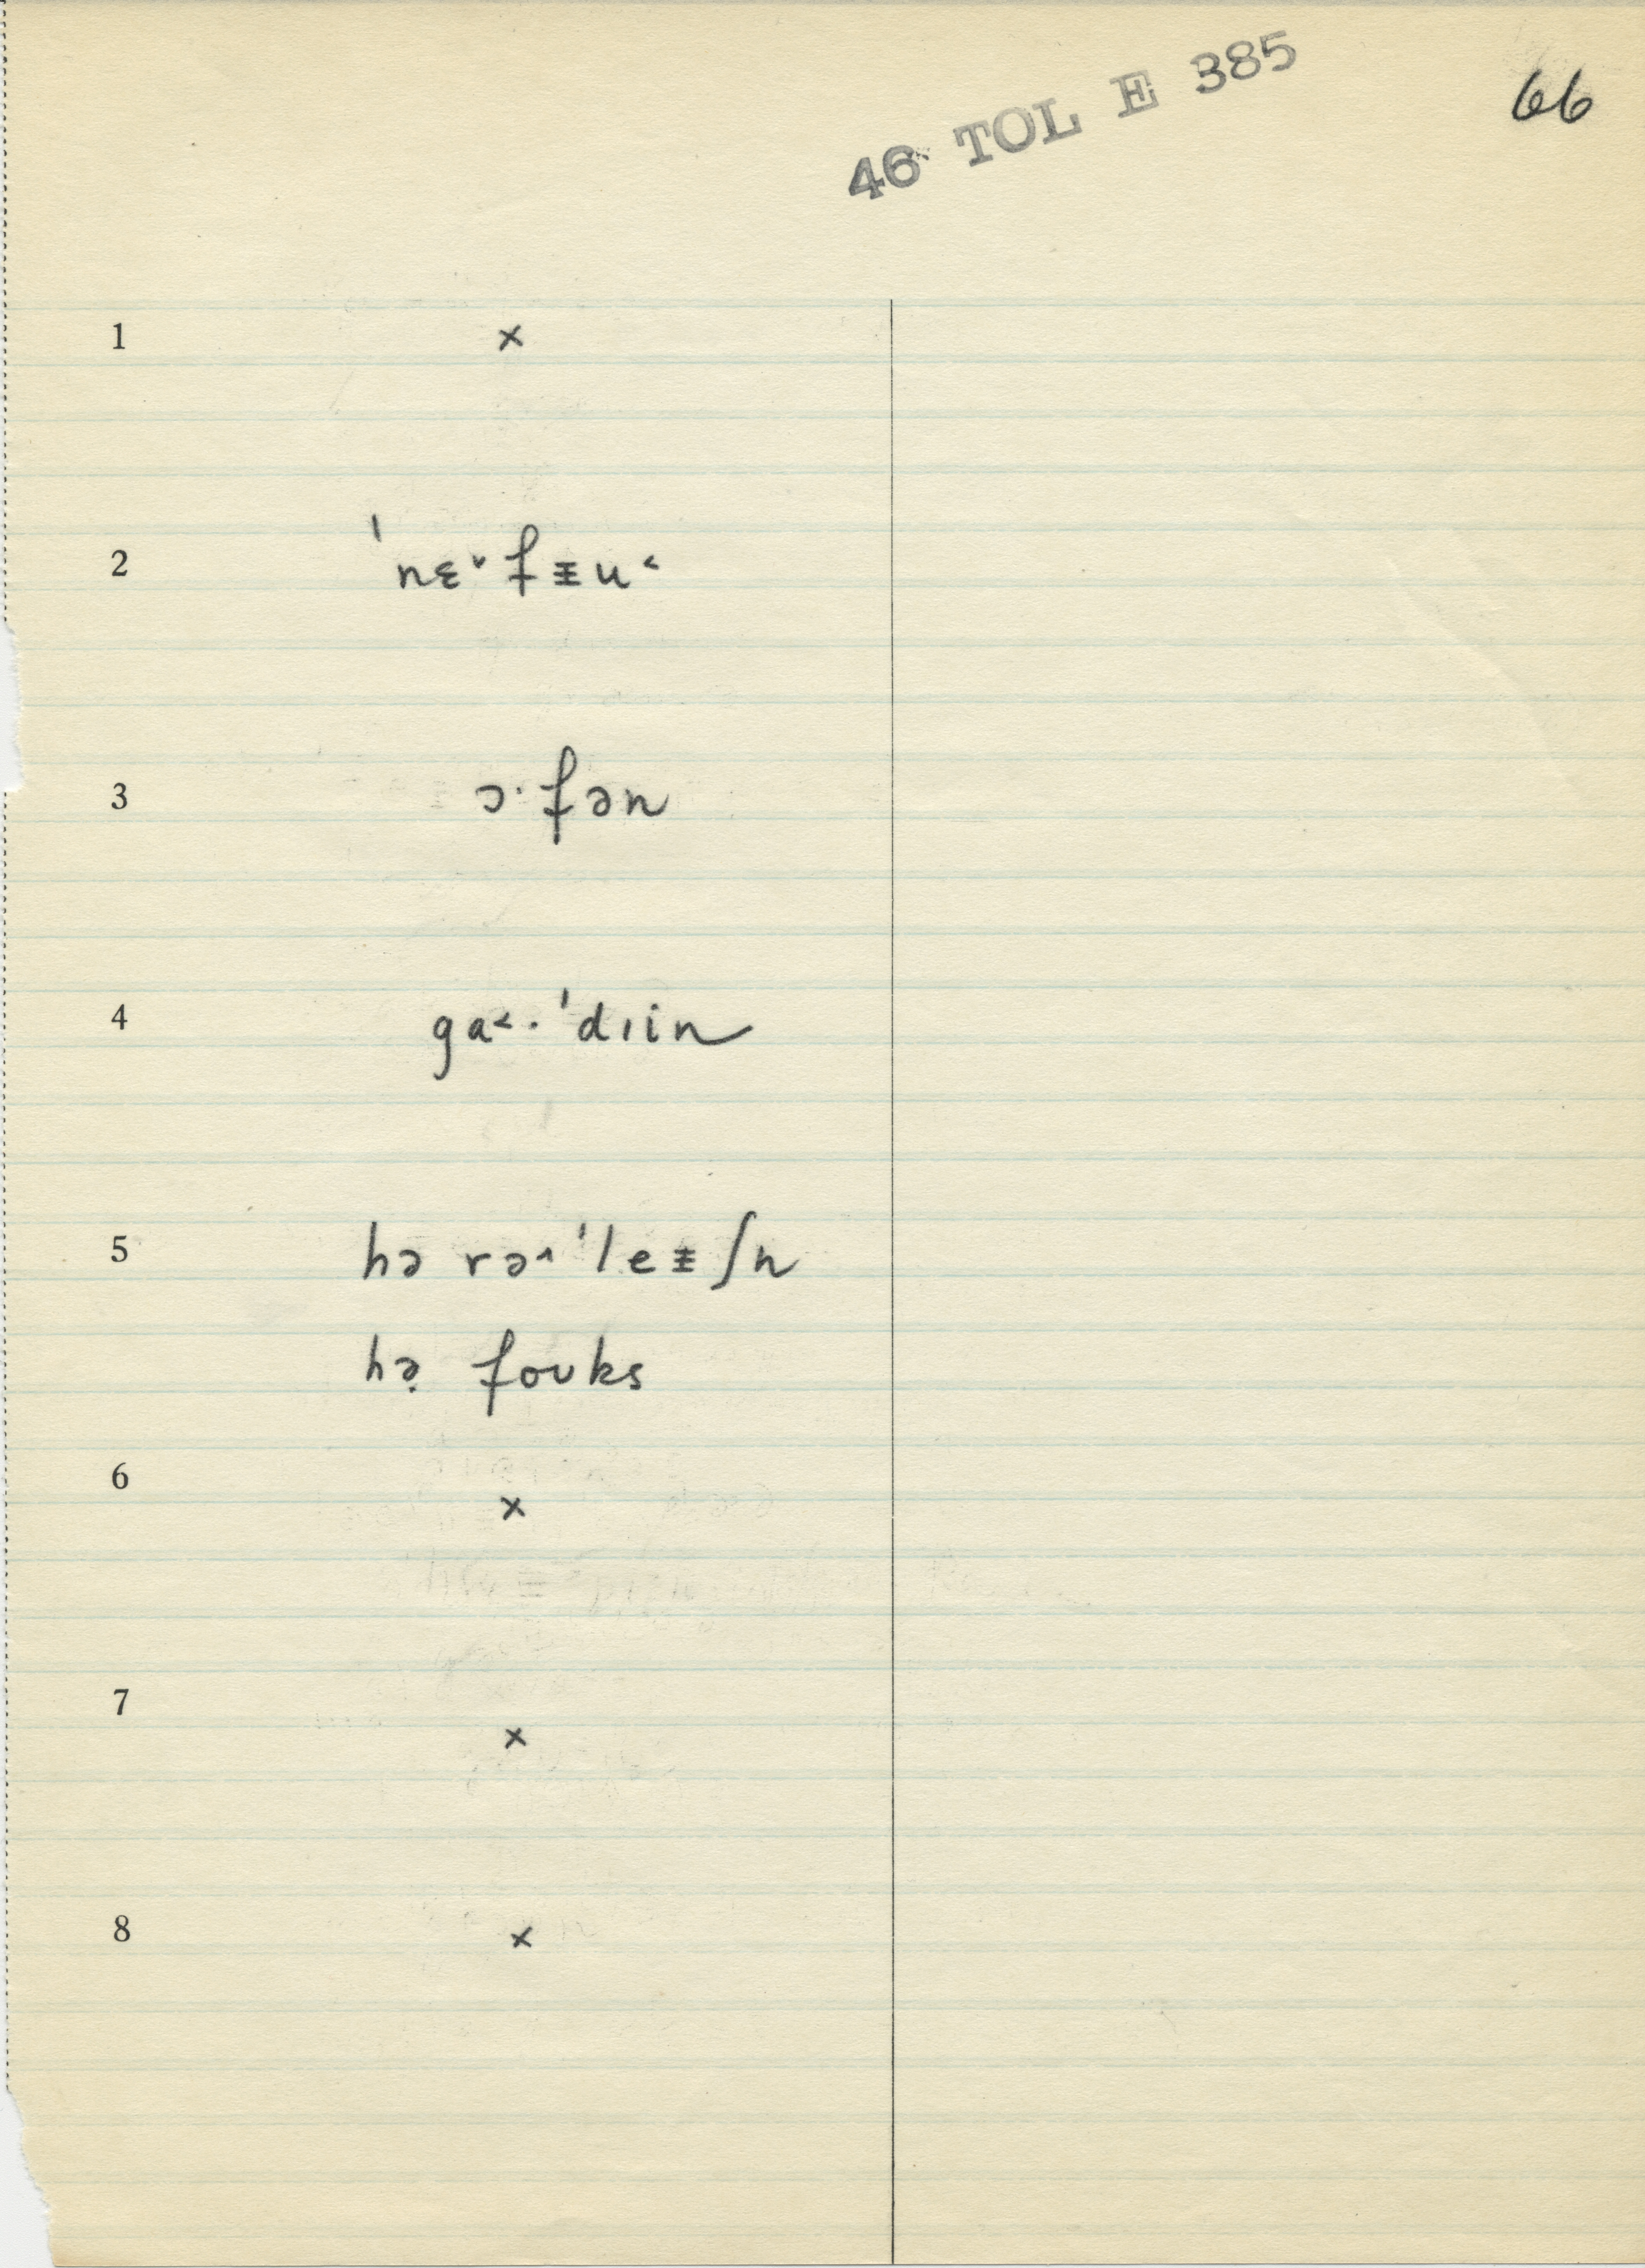 46 TOL E 385
66
1 ×
2 ˈnɛ˅fᵻu˂
3 ɔ·fən
4 ga˂·ˈdɪin
5 hə rə˄ˈleᵻʃn
hə̣ foʊks
6 ×
7 ×
8 ×